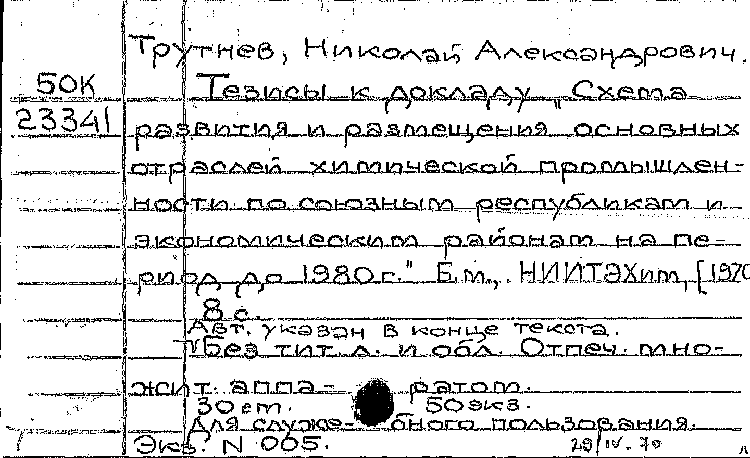 Трутнев, Николай Александрович.
50К
23341
Тезисы к докладу „Схема
развития и размещения основных
отраслей химической промышлен-
ности по союзным республикам и
экономическим районам на пе-
риод до 1980г." Б.м., НИИТЭХим, [1970
8 с.
Авт. указан в конце текста.
Без тит. л. и обл. Отпеч. мно-
жит. аппа- ратом.
30 ст. 50 экз.
Для служе- бного пользования.
Экз. N 005. 29/IV. 70